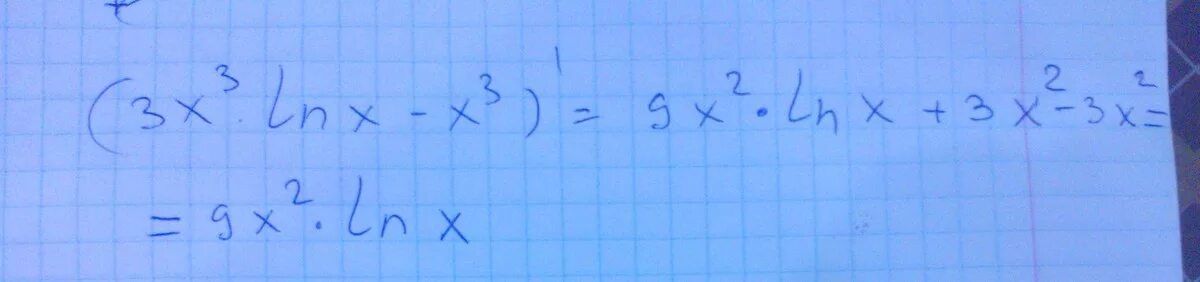 (3x³·ln x - x³)' = 9x²·ln x + 3x² - 3x² =
= 9x²·ln x